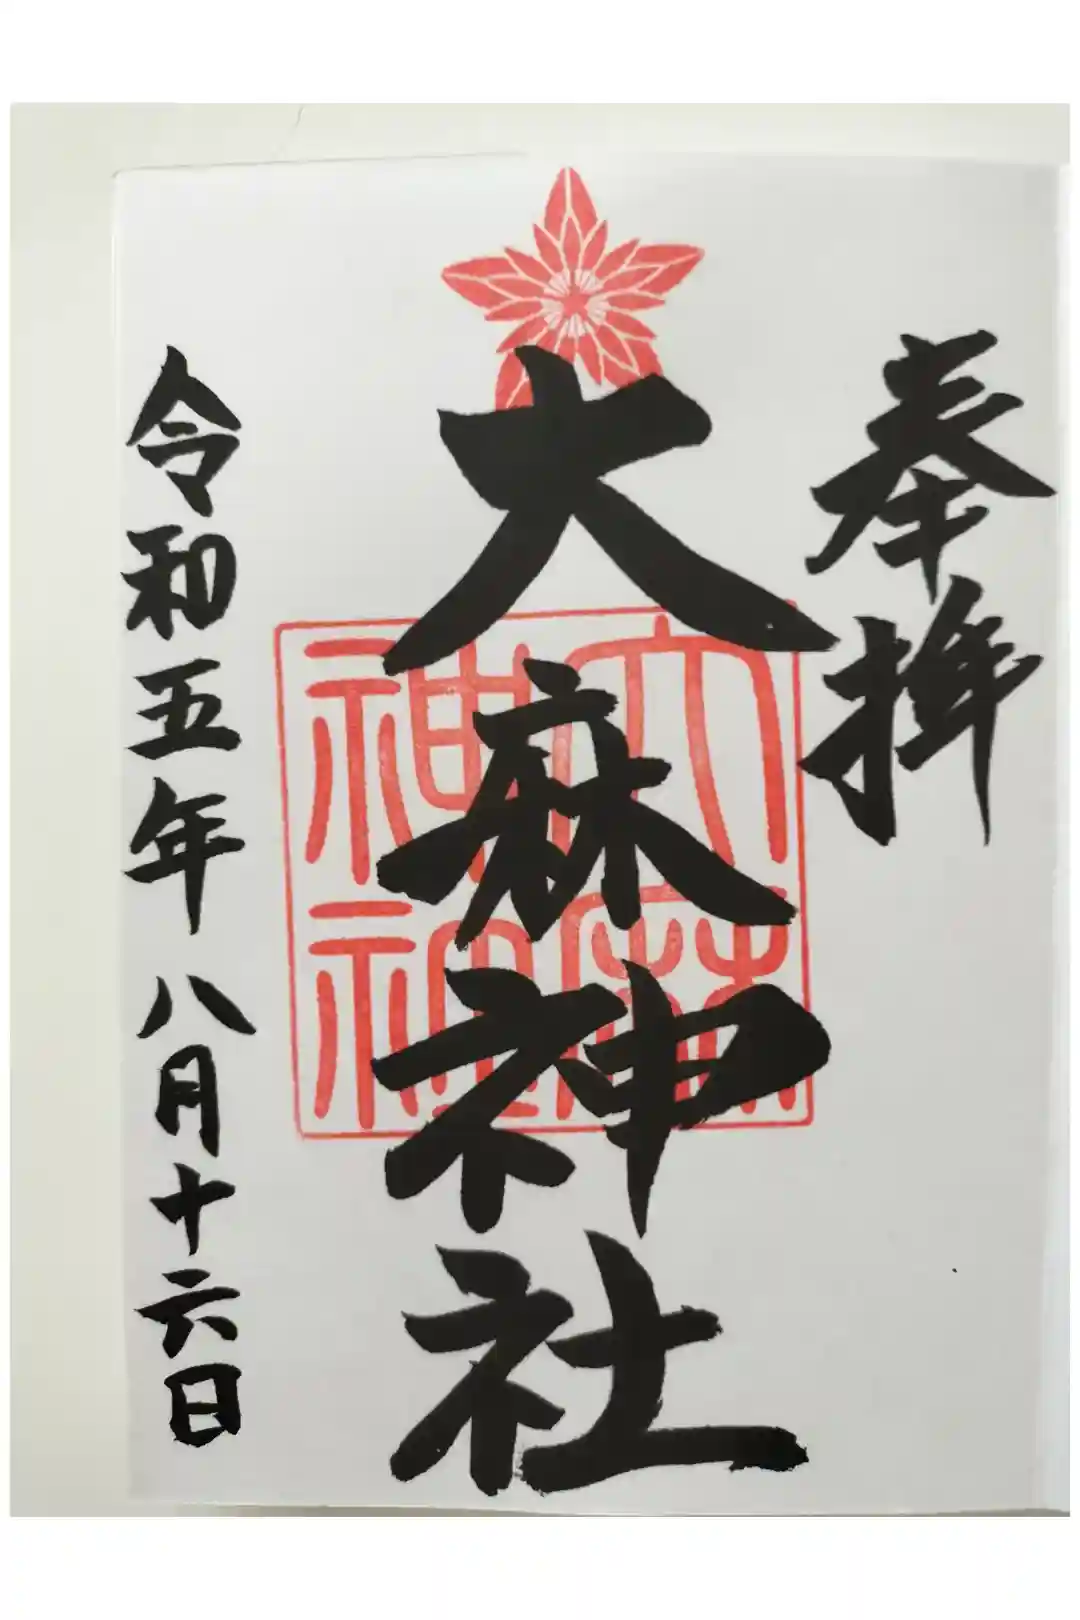 奉拝
大麻神社
大麻神社
令和五年 八月十六日